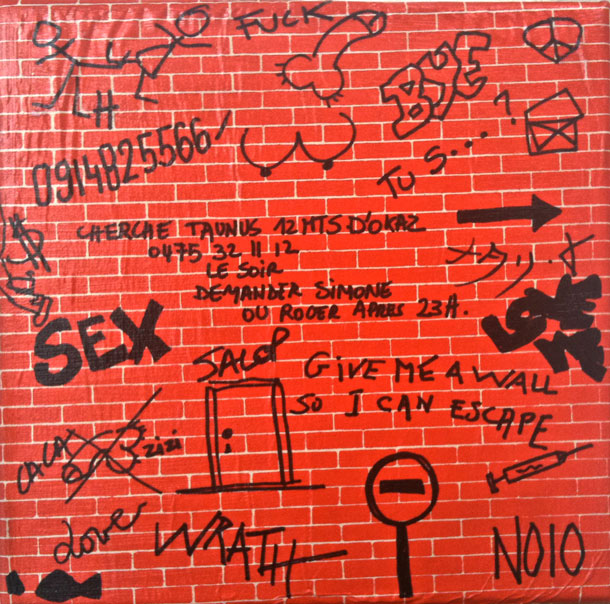 FUCK
LH
BYE
0914825566/
TU S....?
CHERCHE TAUNUS 12MTS D'OKAZ
0475 32 11 12
LE SOIR
DEMANDER SIMONE
OU ROGER APRES 23H.
SEX
LOVE
ME
SALOP
GIVE ME A WALL
SO I CAN ESCAPE
CACA
zizi
Love
WRATH
NOIO